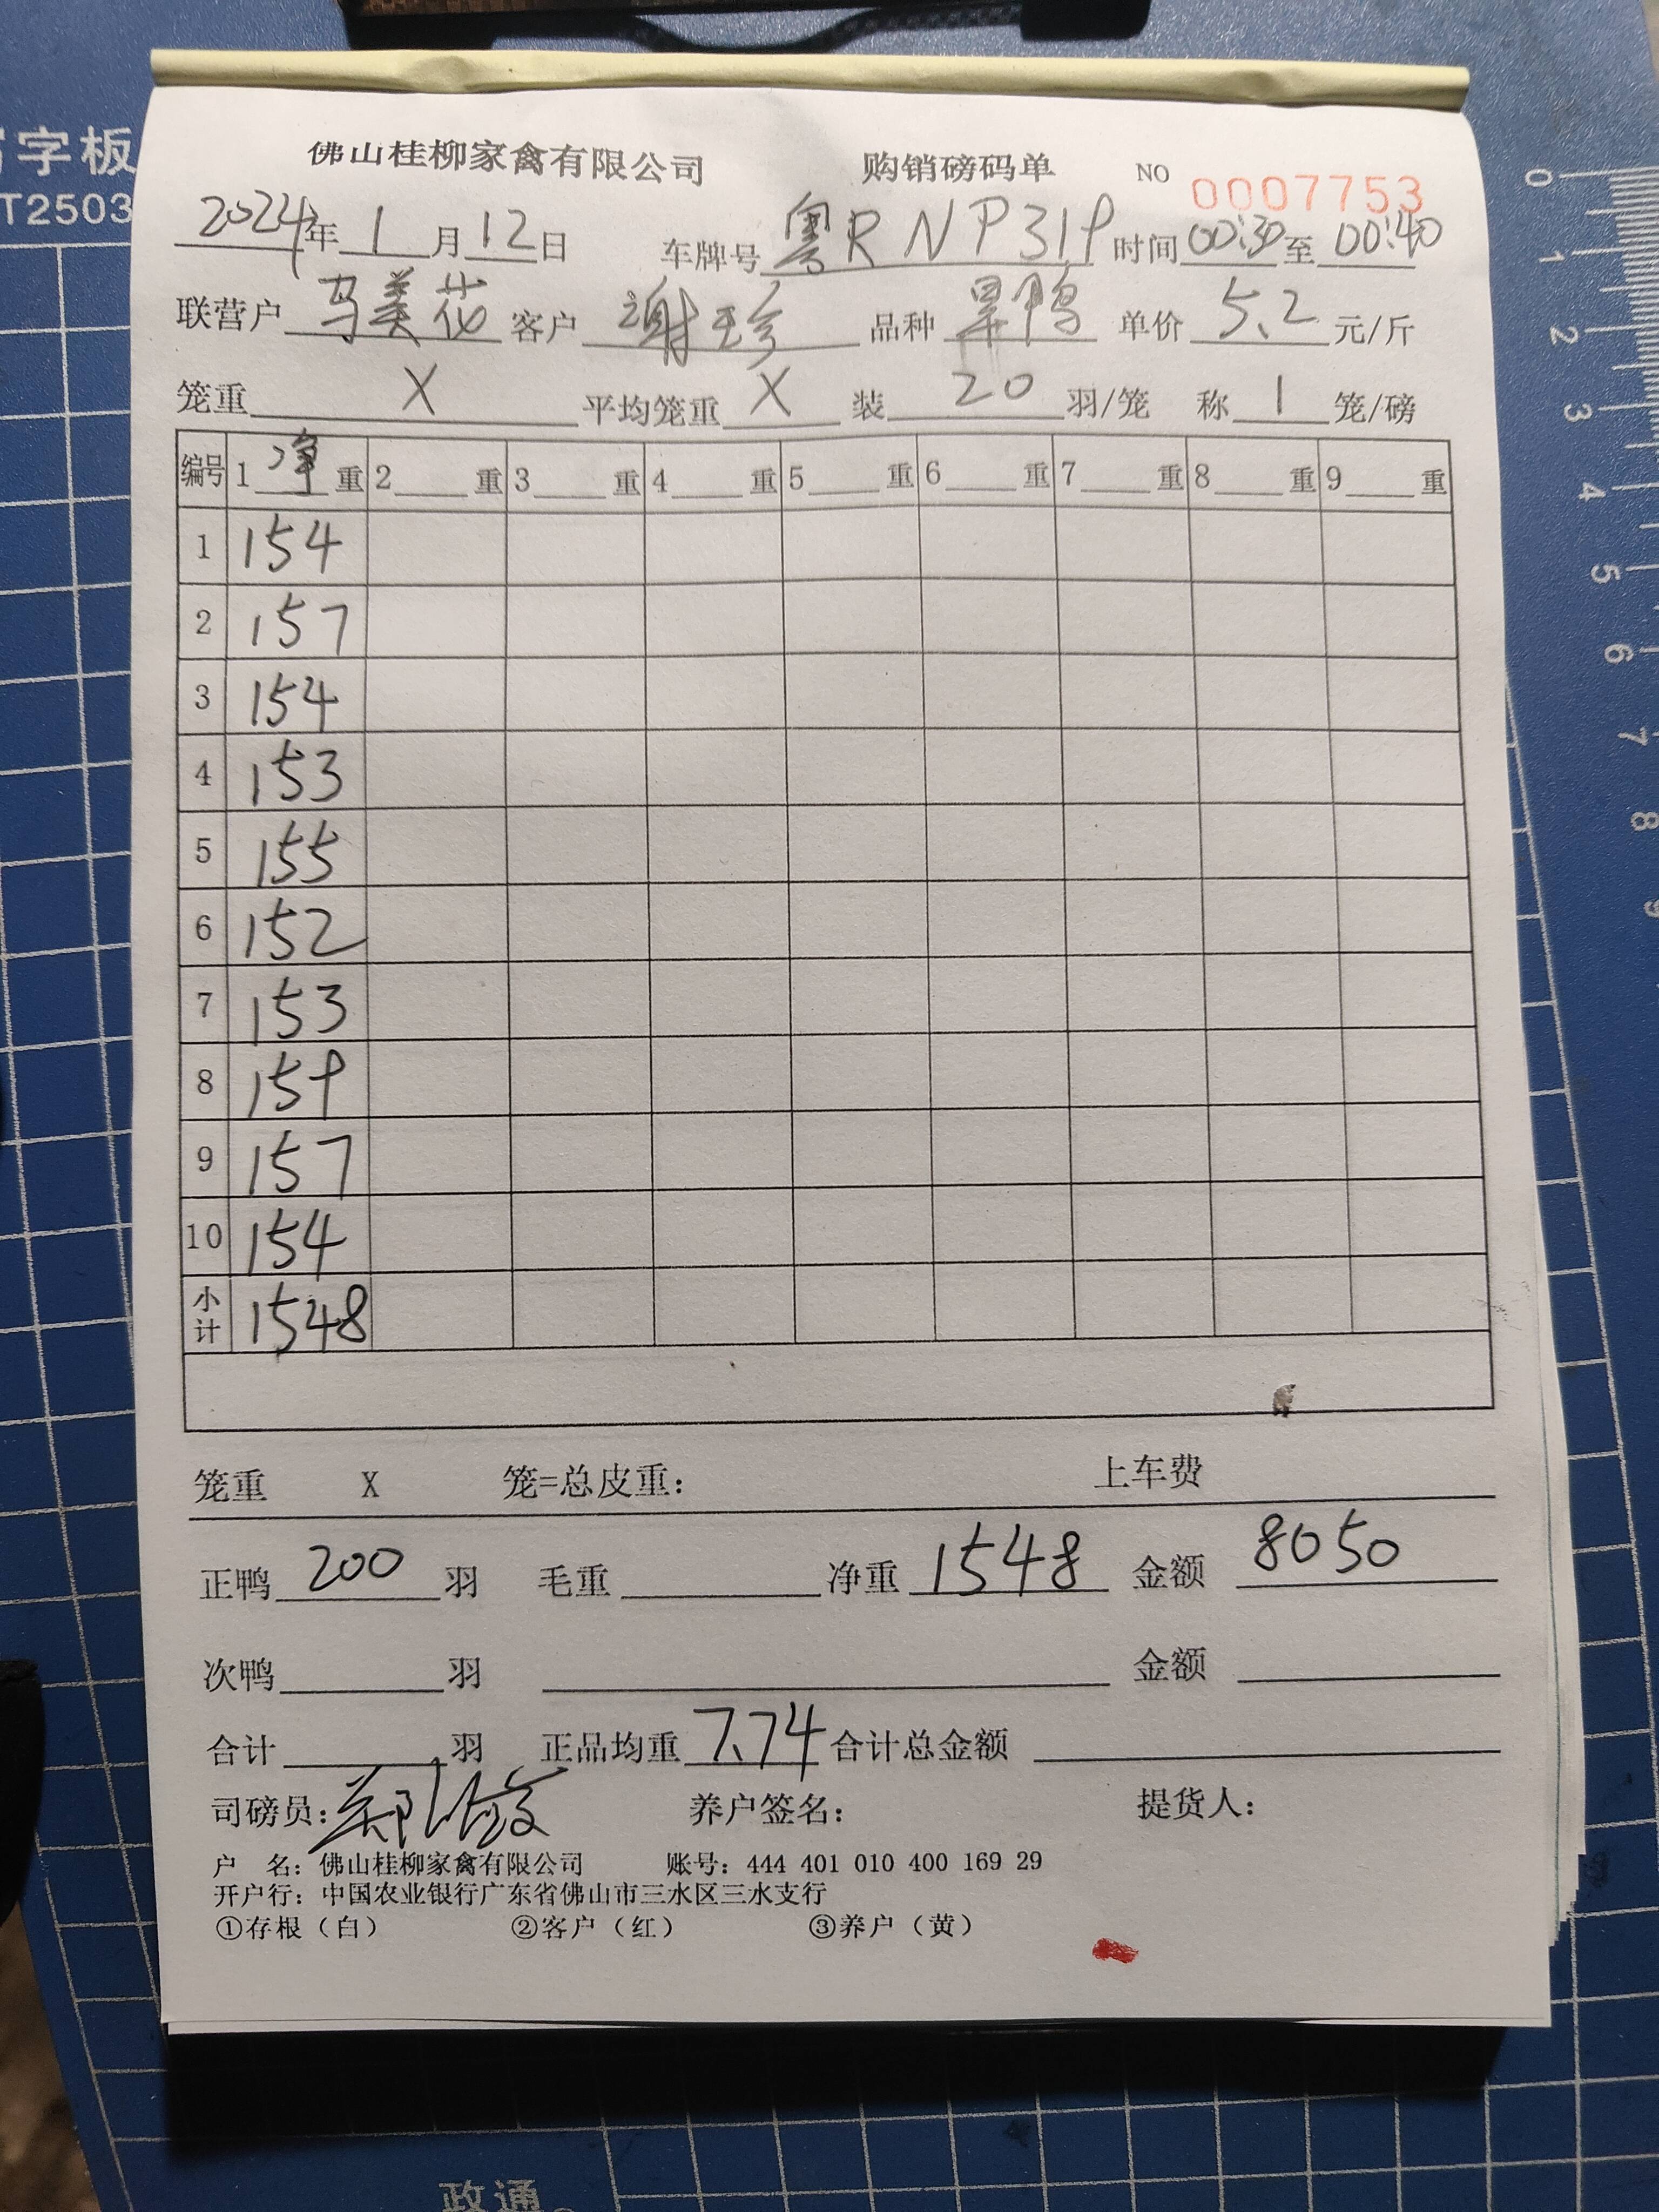 字板
T2503
佛山桂柳家禽有限公司 购销磅码单 NO 0007753
2024年1月12日 车牌号粤RNP319 时间00:30至00:40
联营户 马美花 客户 谢珍 品种 旱鸭 单价 5.2 元/斤
笼重 X 平均笼重 X 装 20 羽/笼 称 1 笼/磅
编号 1 净 重 2 重 3 重 4 重 5 重 6 重 7 重 8 重 9 重
1 154
2 157
3 154
4 153
5 155
6 152
7 153
8 159
9 157
10 154
小计 1548
笼重 X 笼=总皮重: 上车费
正鸭 200 羽 毛重 净重 1548 金额 8050
次鸭 羽 金额
合计 羽 正品均重 7.74 合计总金额
司磅员: 养户签名: 提货人:
户 名: 佛山桂柳家禽有限公司 账号: 444 401 010 400 169 29
开户行: 中国农业银行广东省佛山市三水区三水支行
①存根（白） ②客户（红） ③养户（黄）
0
1
2
3
4
5
6
7
8
9
政通